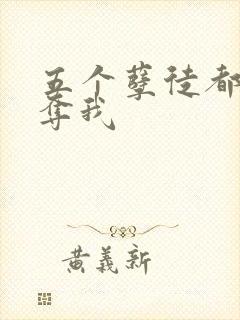 五个孽徒都
夺我
黄义新